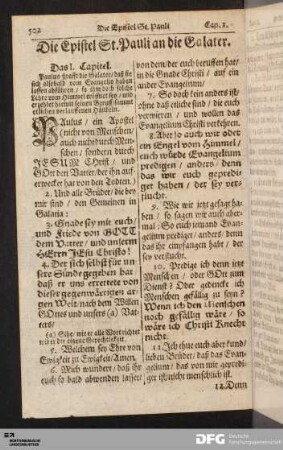 502 Die Epistel St. Pauli Cap. 1.
Die Epistel St. Pauli an die Galater.
Das 1. Capitel.
Paulus strafft die Galater, daß sie
sich alsobald vom Evangelio haben
PAulus / ein Apostel
(nicht von Menschen /
auch nicht durch Menschen /
sondern durch
JESUM Christ / und
GOtt den Vatter / der ihn auferwecket
hat von den Todten.)
2. Und alle Brüder / die bey
mir sind / den Gemeinen in
Galatia:
3. Gnade sey mit euch /
und Friede von GOTT
dem Vatter / und unserm
HErrn JEsu Christo!
4. Der sich selbst für unsere
Sünde gegeben hat /
daß er uns errettete von
dieser gegenwärtigen argen
Welt nach dem Willen
GOttes und unsers (a) Vatters /
5. Welchem sey Ehre von
Ewigkeit zu Ewigkeit / Amen.
6. Mich wundert / daß ihr
euch so bald abwenden lasset /
von dem / der euch beruffen hat /
in die Gnade Christi / auf ein
ander Evangelium /
7. So doch kein anders ist /
ohne daß etliche sind / die euch
verwirren / und wollen das
Evangelium Christi verkehren.
8. Aber so auch wir oder
ein Engel vom Himmel /
euch würde Evangelium
predigen / anders / denn
das wir euch geprediget
haben / der sey verflucht.
9. Wie wir jetzt gesagt haben /
so sagen wir auch abermal:
So euch jemand Evangelium
prediget / anders / denn
das ihr empfangen habt / der
sey verflucht.
10. Predige ich denn jetzt
Menschen / oder GOtt zum
Dienst? Oder gedencke ich
Menschen gefällig zu seyn?
Wenn ich den Menschen
noch gefällig wäre / so
wäre ich Christi Knecht
nicht.
11. Ich thue euch aber kund /
lieben Brüder / daß das Evangelium /
das von mir geprediget
ist / nicht menschlich ist.
12. Denn
DFG Deutsche
Forschungsgemeinschaft